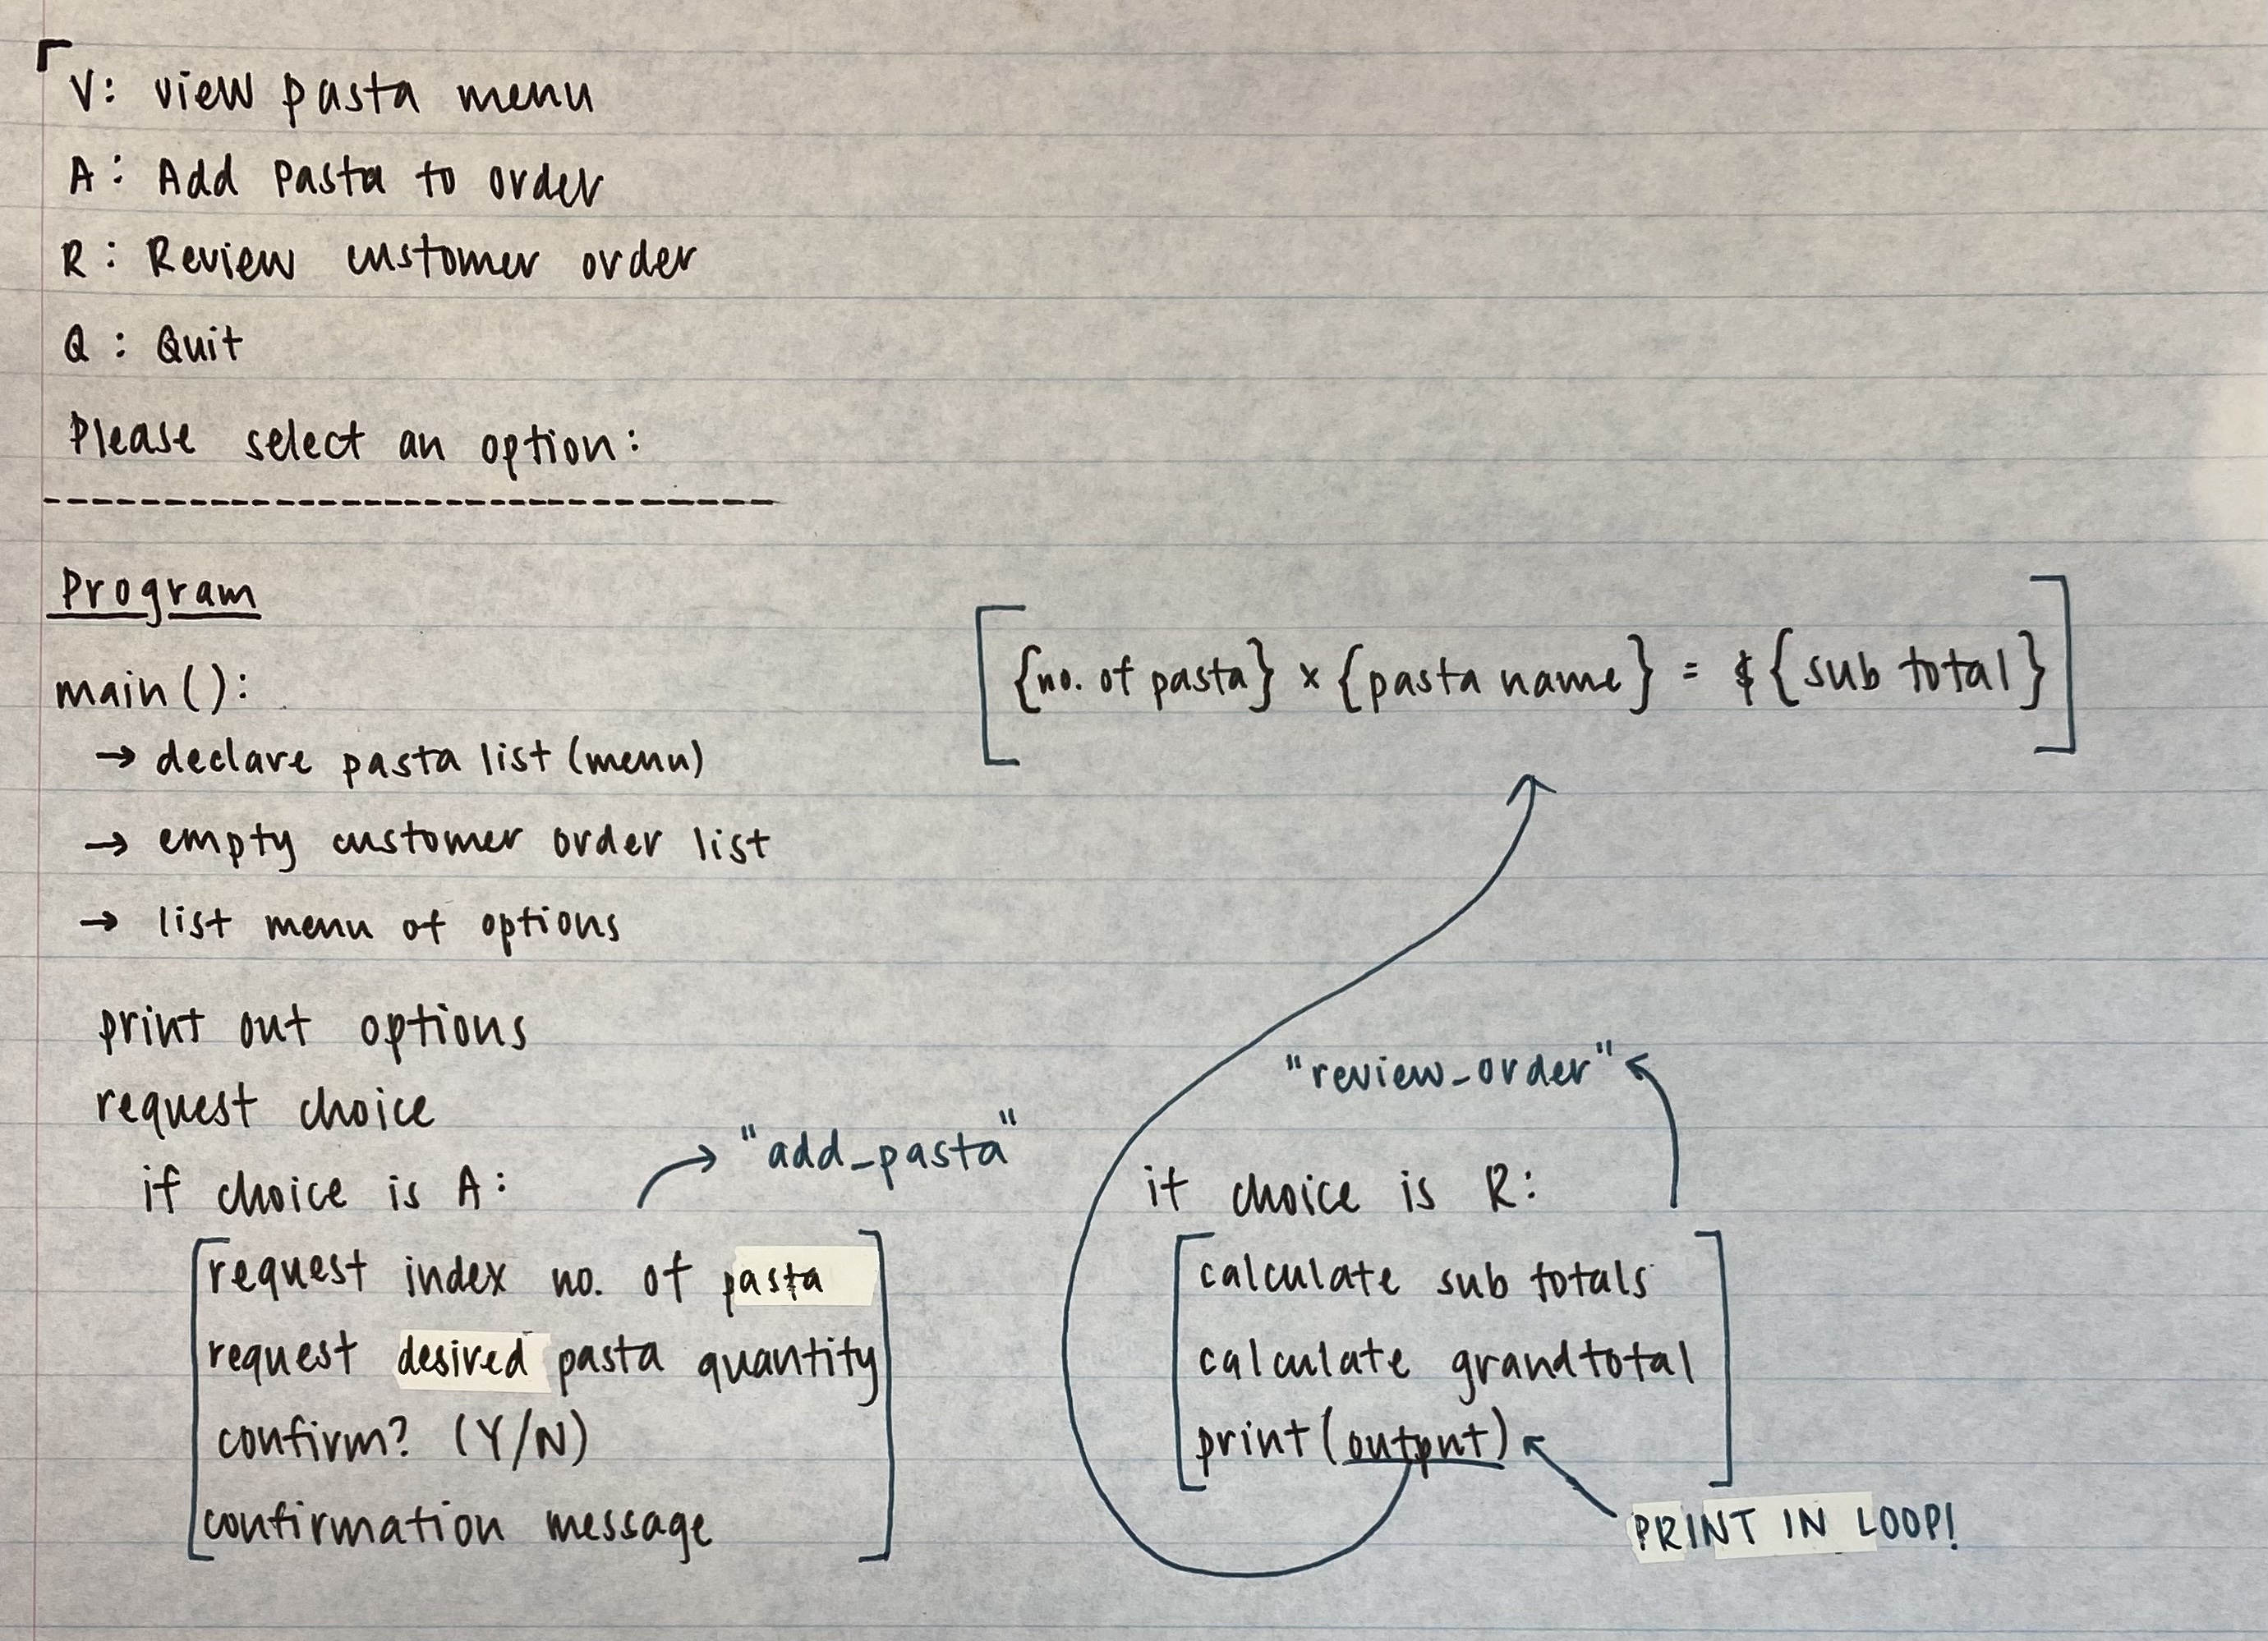 V: view pasta menu
A: Add pasta to order
R: Review customer order
Q: Quit
Please select an option:
Program
main():
→ declare pasta list (menu)
→ empty customer order list
→ list menu of options
print out options
request choice
if choice is A:
"add_pasta"
request index no. of pasta
request desired pasta quantity
confirm? (Y/N)
confirmation message
{no. of pasta} x {pasta name} = ${sub total}
"review_order"
if choice is R:
calculate sub totals
calculate grandtotal
print(output)
PRINT IN LOOP!